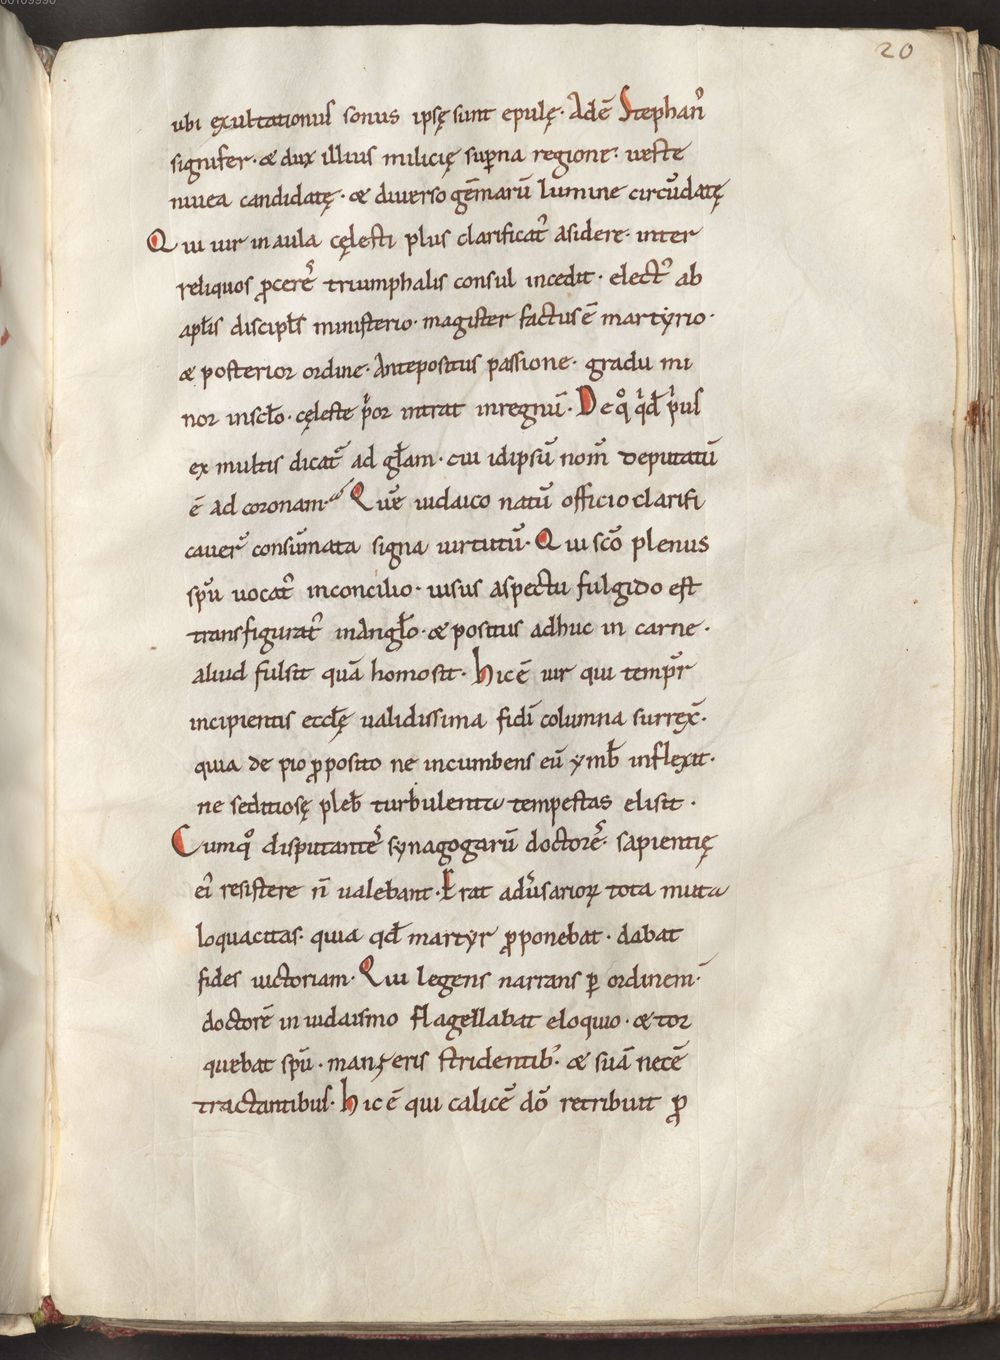 20
ubi exultationis sonus ipsę sunt epulę. Adē Stephan᾽
signifer. & dux illius milicię sup̄na regione. ueste
niuea candidatę. & diuerso gēmarū lumine circūdatę
Qui uir in aula cęlesti plus clarificat᾽ asidere. inter
reliquos ꝓcerē triumphalis consul incedit. elect᾽ ab
apłis discipłs ministerio. magister factus ē martyrio.
& posterior ordine. Antepositus passione. gradu mi
nor insclo. cęleste p̓or intrat inregnū. De qͦ qͥd p̓us
ex multis dicat᾽ ad głam. cui idipsū nom̄ deputatū
ē ad coronam. Quē iudaico natū officio clarifi
cauer̄ consūmata signa uirtutū. Qui scō plenus
spū uocat᾽ inconcilio. uisus aspectu fulgido est
transfigurat᾽ inAngło. & positus adhuc in carne.
aliud fulsit quā homo sit. hic ē uir qui temp̄r
incipientis eccłę ualidissima fidī columna surrex̄.
quia de pio ꝓposito ne incumbens eū ymb̄ inflexit.
ne seditiosę pleb̄ turbulenta tempestas elisit.
Cumq᾽ disputantē synagogarū doctorē. sapientię
eī resistere n̄ ualebant. Erat adūsarioꝝ tota muta
loquacitas. quia qd̄ martyr ꝓponebat. dabat
fides uictoriam. Qui legens narrans ꝑ ordinem.
doctorē in iudaismo flagellabat eloquio. & tor
quebat spū. manzeris stridentib᾽. & suā necē
tractantibus. hic ē qui calicē dō retribuit ꝓ